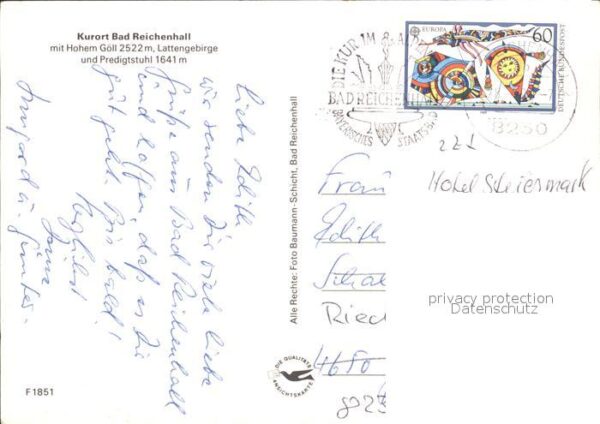 Kurort Bad Reichenhall
mit Hohem Göll 2522 m, Lattengebirge
und Predigtstuhl 1641 m
Liebe Edith
wir senden Dir viele liebe
Grüße aus Bad Reichenhall
und hoffen, daß es Dir
gut geht. Bis bald!
Herzlichst
Deine
Irmgard u. Günter.
F 1851
Alle Rechte: Foto Baumann-Schicht, Bad Reichenhall
DIE QUALITÄTS
ANSICHTSKARTE
DIE KUR IM
BAD REICHENHALL
BAYERISCHES STAATSBAD
8230
EUROPA
60
DEUTSCHE BUNDESPOST
221
Hotel Steiermark
Frau
Edith
Ried
4680
privacy protection
Datenschutz